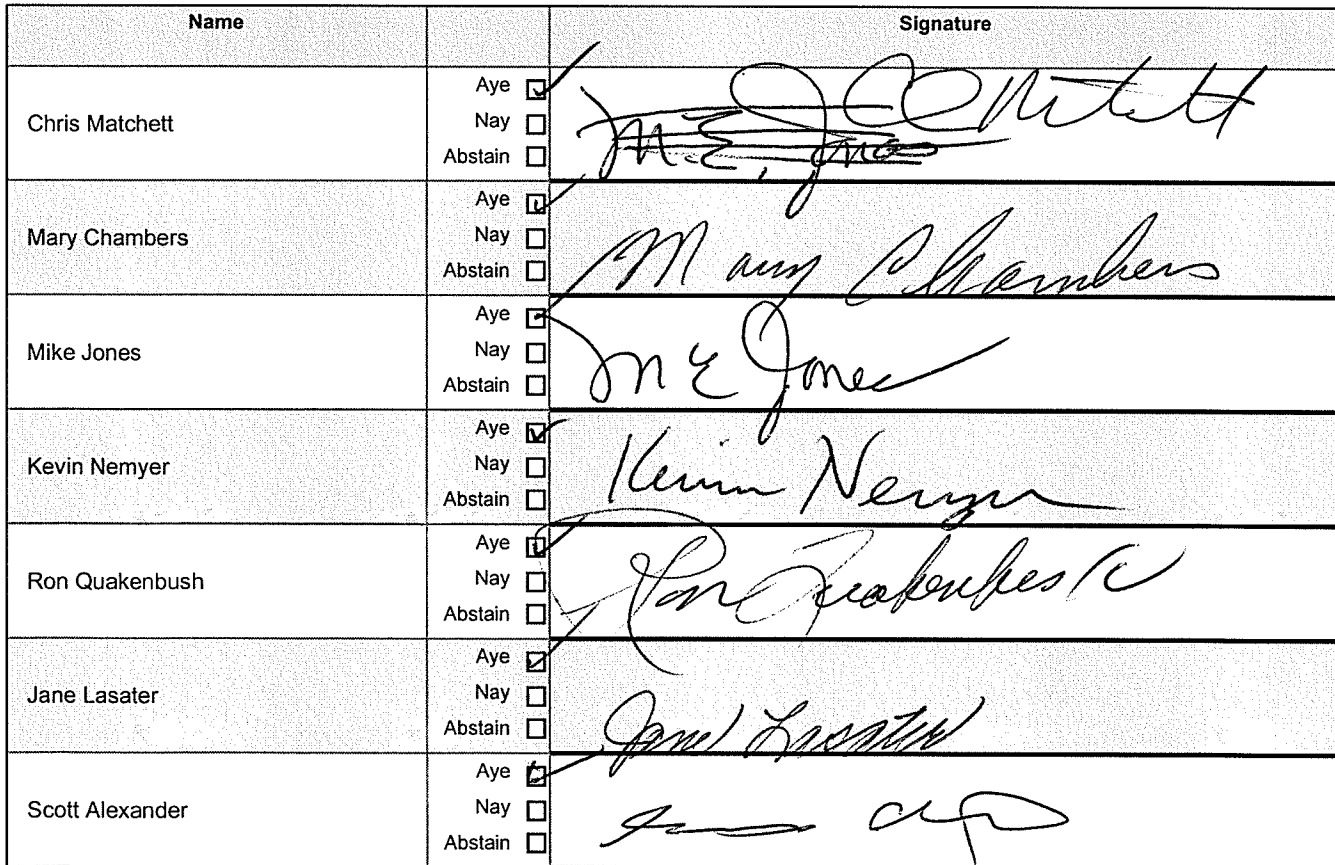 Name Signature
Chris Matchett
Aye ☑
Nay ☐
Abstain ☐
M.E. Jones
Mary Chambers
Aye ☑
Nay ☐
Abstain ☐
Mary Chambers
Mike Jones
Aye ☑
Nay ☐
Abstain ☐
M E Jones
Kevin Nemyer
Aye ☑
Nay ☐
Abstain ☐
Kevin Nemyer
Ron Quakenbush
Aye ☑
Nay ☐
Abstain ☐
Ron Quakenbush
Jane Lasater
Aye ☑
Nay ☐
Abstain ☐
Jane Lasater
Scott Alexander
Aye ☑
Nay ☐
Abstain ☐